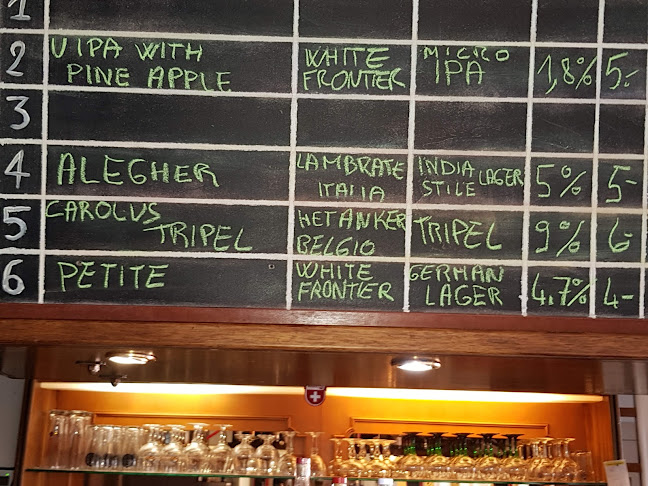 1
2 VIPA WITH PINE APPLE WHITE FRONTIER MICRO IPA 1,8% 5.-
3
4 ALEGHER LAMBRATE ITALIA INDIA STILE LAGER 5% 5-
5 CAROLUS TRIPEL HET ANKER BELGIO TRIPEL 9% 6-
6 PETITE WHITE FRONTIER GERMAN LAGER 4.7% 4-